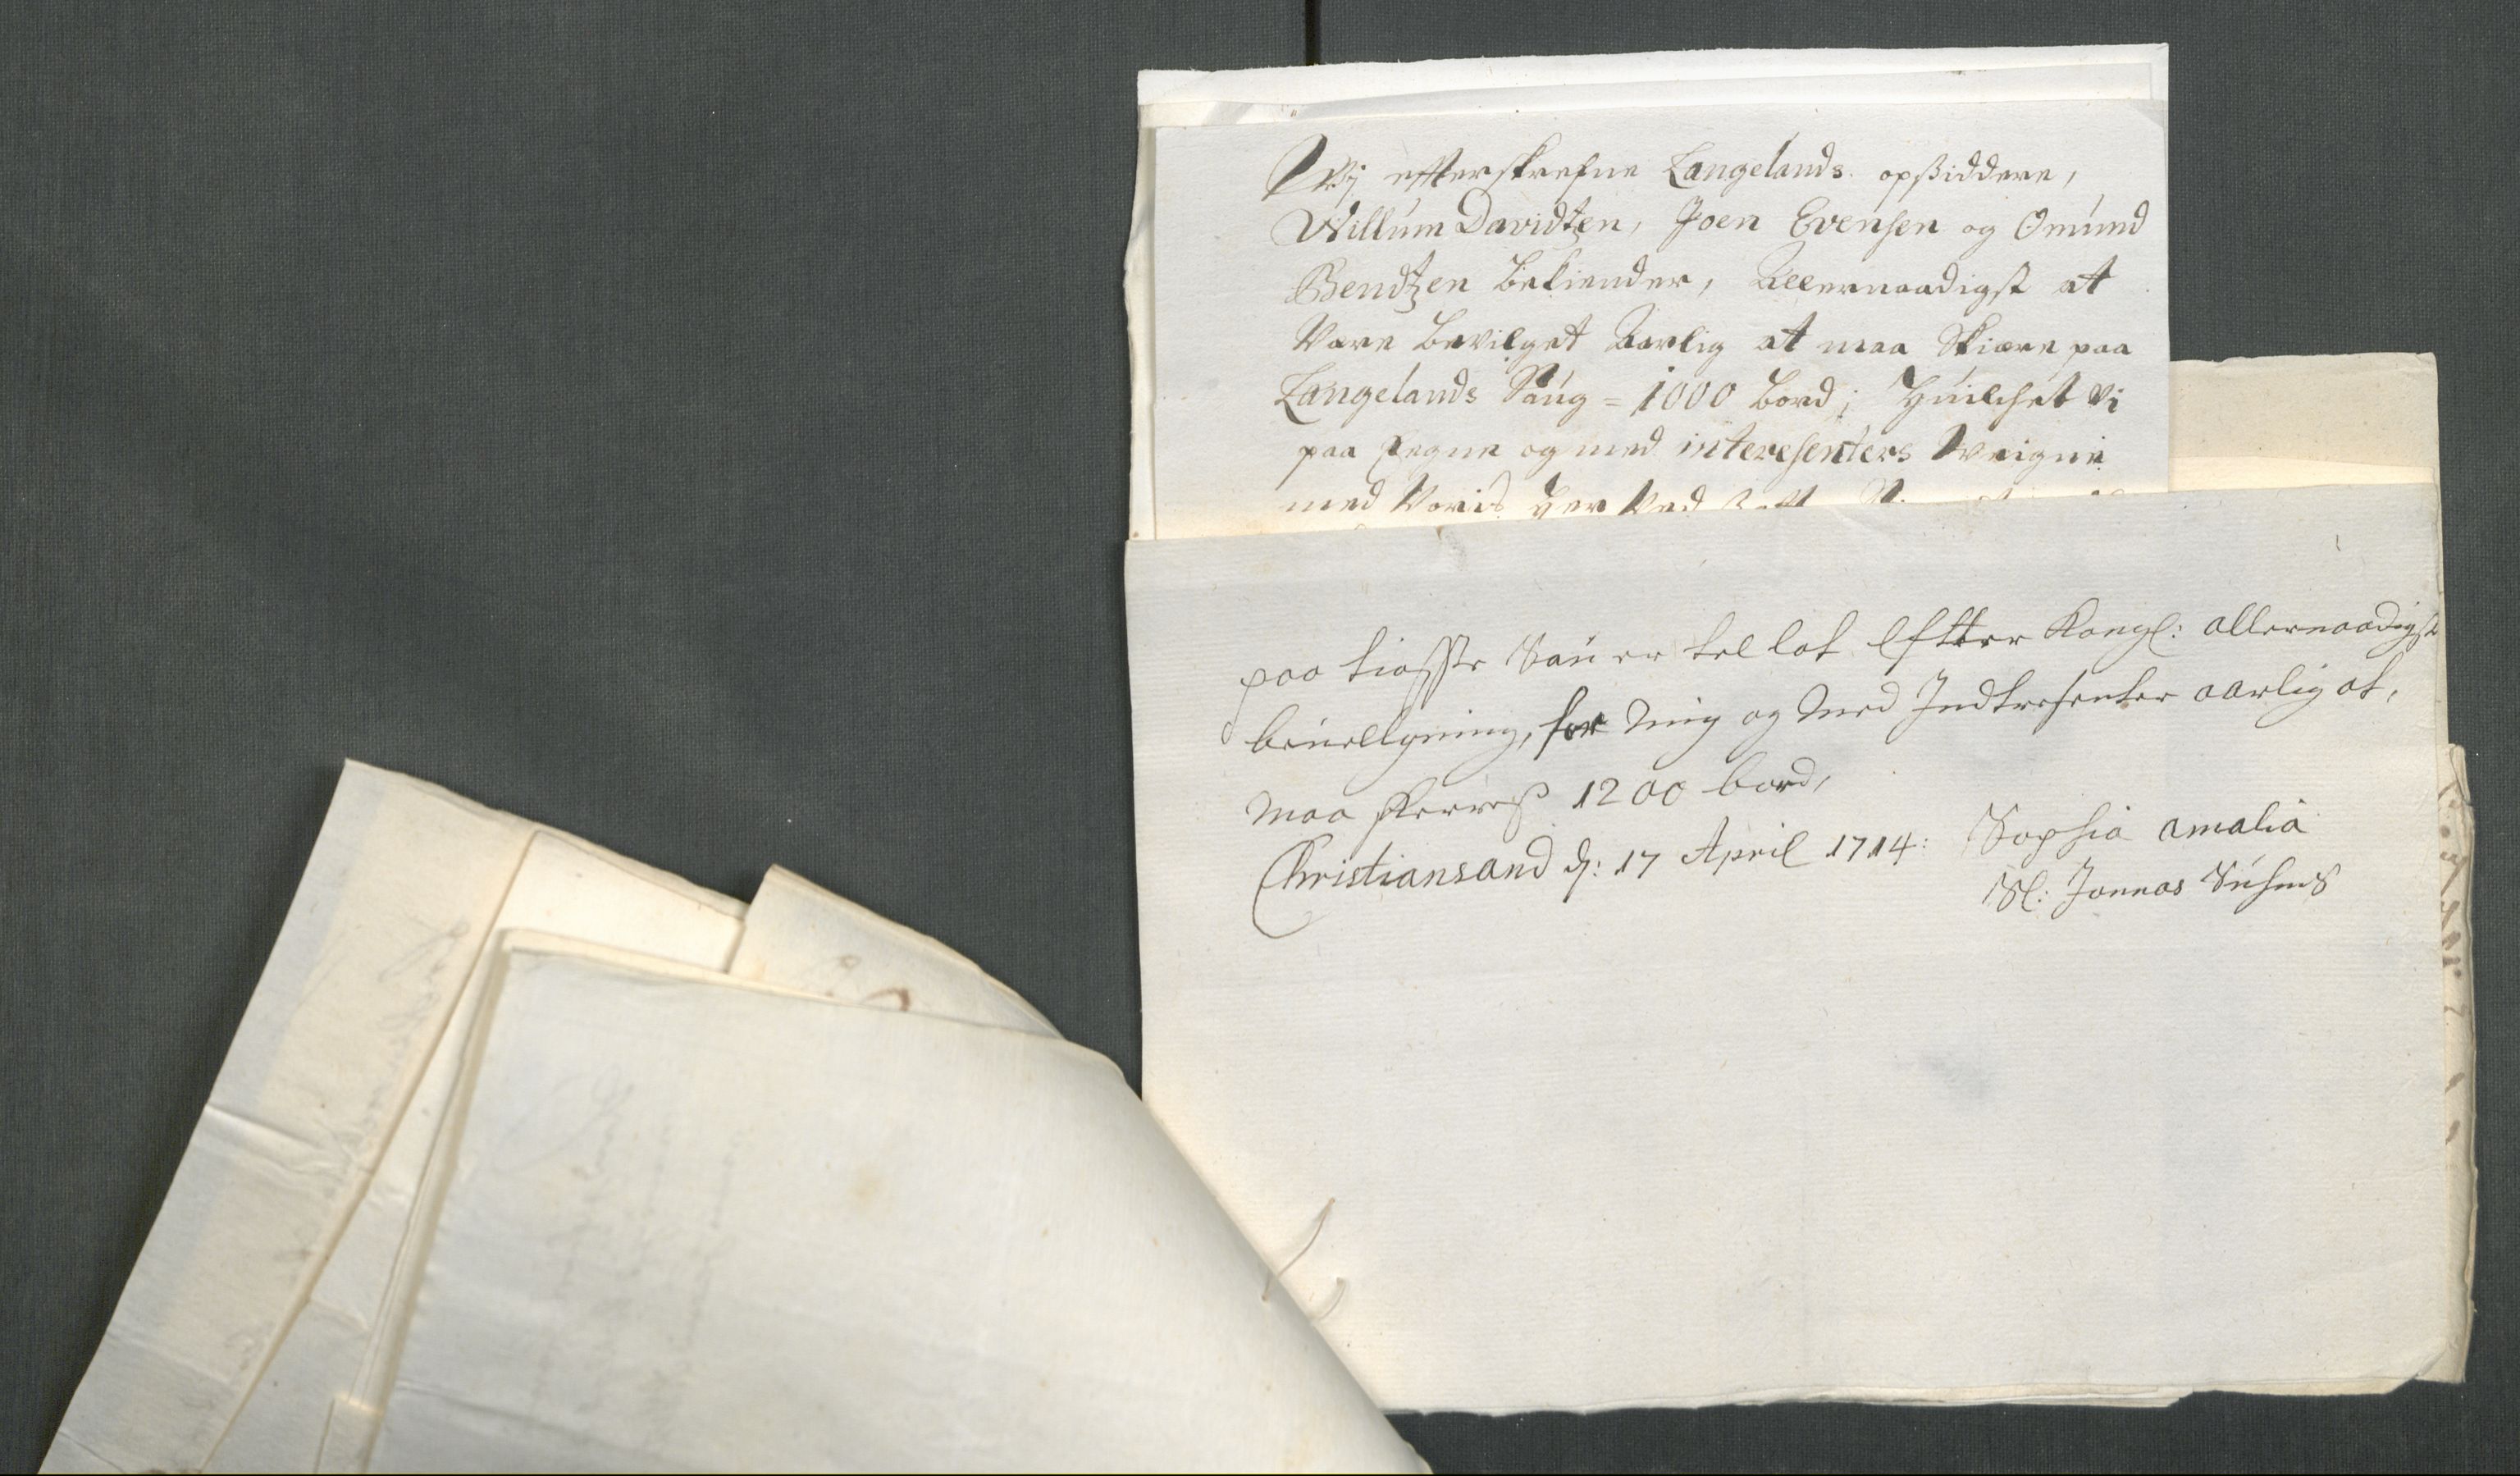 Wÿ effterskrefne Langelands opsiddere,
Willum Davidtzen, Joen Evensen og Omund
Bendtzen bekiender, Allernaadigst at
Være bevilget Aarlig at maa Skiære paa
Langelands Saug = 1000 bord; Huilchet Vi
paa Eegne og med interesenters Veigne
med Voris Her Ved
paa tiosse Sau er tellat Efter Kongl: allernaadigst
beuellgning, for mig og Med Indtresenter aarlig at,
Maa skerreß 1200 bord,
Christiansand d: 17 April 1714: Sophia amalia
Sl: Jonnas Suhms